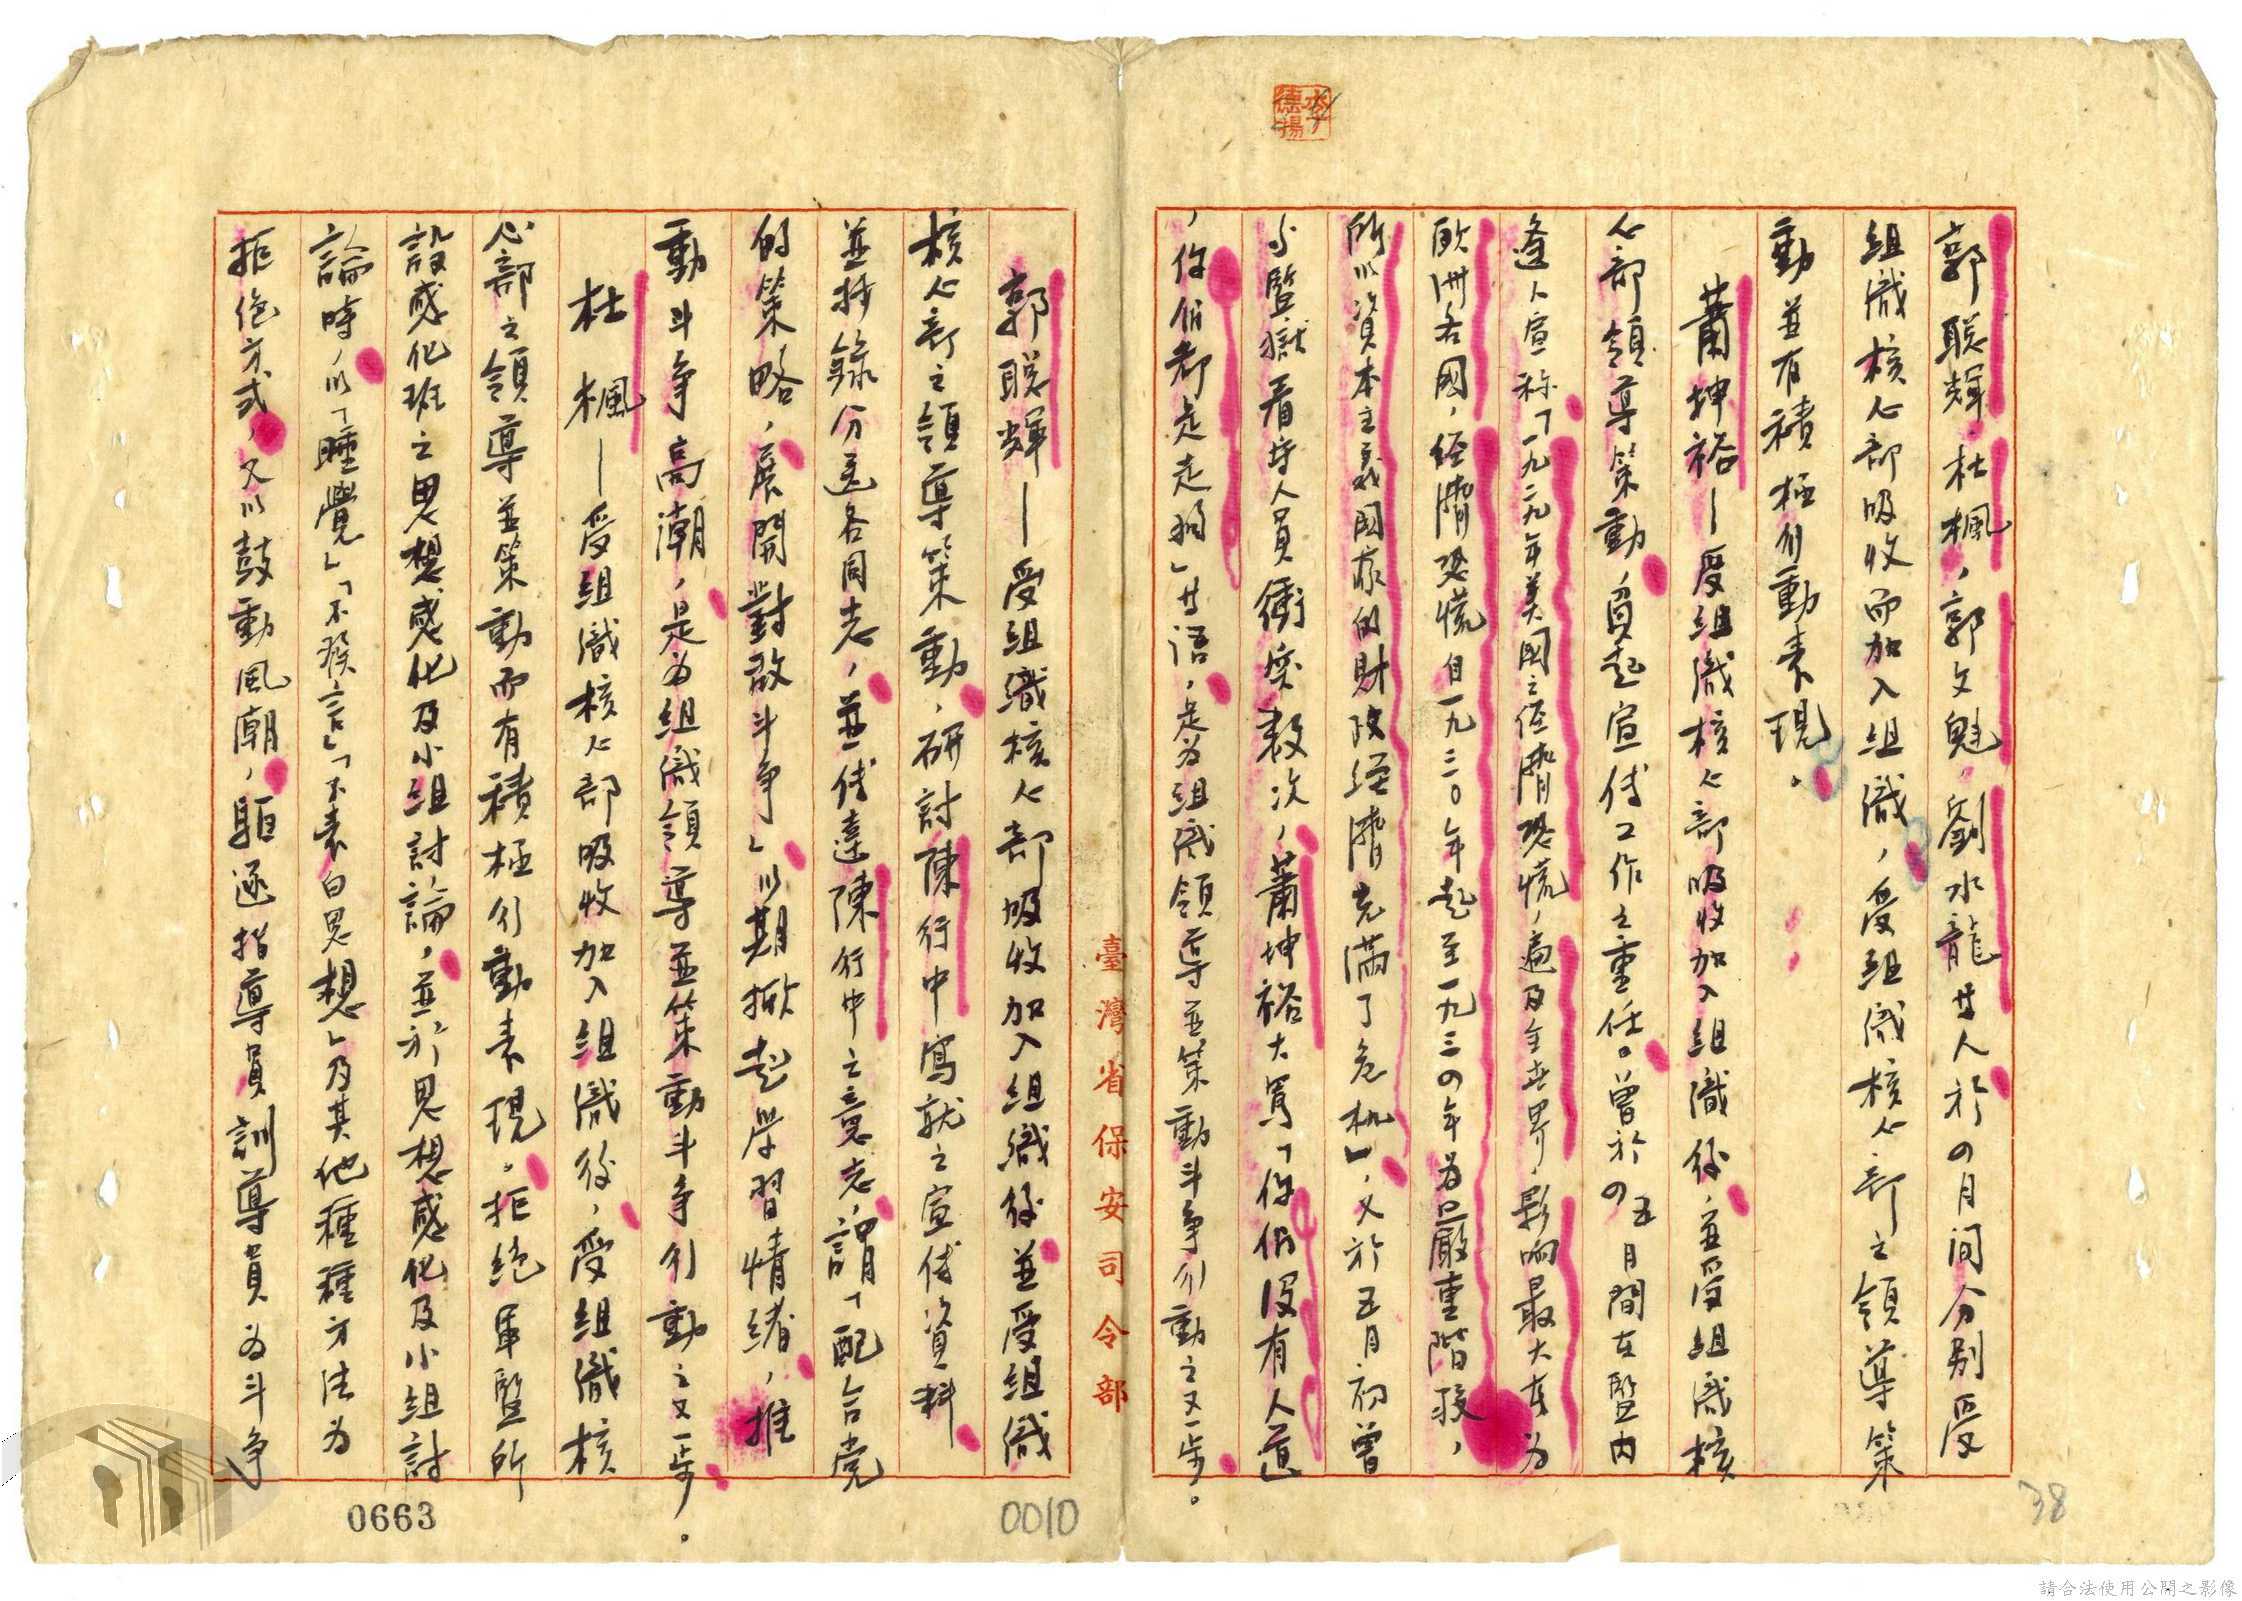 郭聡輝、杜楓，郭文魁，劉水龍廿人於四月间分别受
組識核心部吸收而加入組識，受組識核心部之領導策
動並有積極行動表現。
蕭坤裕—受組識核心部吸收加入組識後，並受組識核
心部領導策動，負起宣传工作之重任。曾於四五月間在監内
逢人宣称「一九二九年美国之经濟恐慌，遍及全世界，影响最大者为
欧洲各國，经濟恐慌自一九三〇年起至一九三四年为最嚴重階段，
所以資本主義國家的財政经濟充滿了危机」，又於五月初曾
与監獄看守人員衝突数次，蕭坤裕大罵「你们沒有人道
，你们都是走狗」廿语，是为組識領導並策動斗争行動之又一步。
郭聡輝—受組織核心部吸收加入組織後並受組識
核心部之領導策動，研討陳行中寫就之宣传資料
並抄錄分送各同志，並传達陳行中之意志，謂「配合党
的策略，展開對敌斗争」以期掀起学習情緒，推
動斗争高潮，是为組識領導並策動斗争行動之又一步。
杜楓—受組識核心部吸收加入組識後，受組識核
心部之領導並策動而有積極行動表現。拒絕軍監所
設感化班之思想感化及小組討論，並於思想感化及小組討
論時，以「睡覺」「不發言」「不表白思想」乃其他種種方法为
拒绝方式，又以鼓動風潮，驅逐指導員訓導員为斗争
臺灣省保安司令部
李德揚
0663
0010
38
請合法使用公開之影像